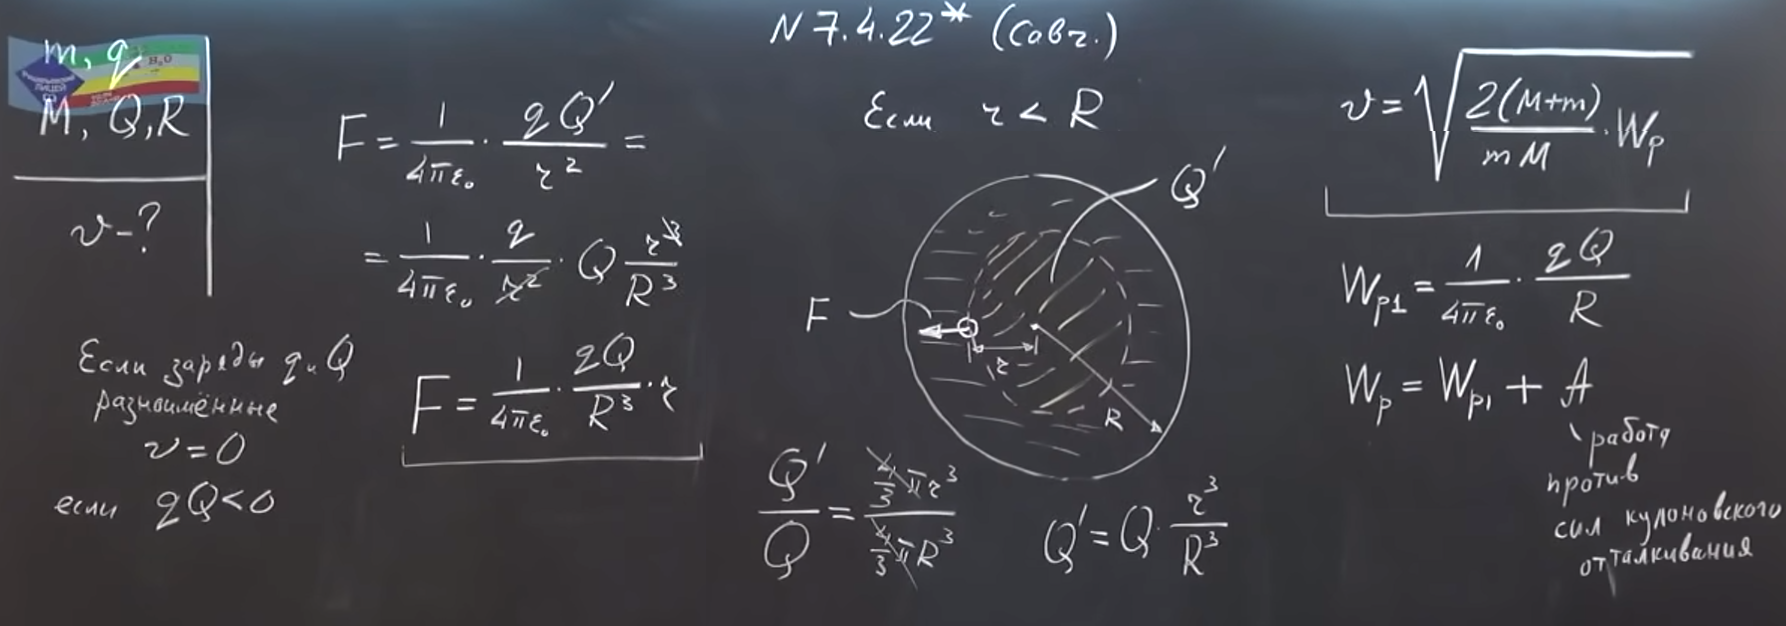 N 7.4.22* (Савч.)
m, q
M, Q, R
v - ?
Если заряды q и Q
разноимённые
v = 0
если qQ < 0
F = 1/4πε₀ · qQ'/r² =
= 1/4πε₀ · q/r² · Q r³/R³
F = 1/4πε₀ · qQ/R³ · r
Если r < R
Q'
F
r
R
Q'/Q = 4/3 π r³ / 4/3 π R³
Q' = Q · r³/R³
v = √(2(M+m)/mM · Wp)
Wp1 = 1/4πε₀ · qQ/R
Wp = Wp1 + A
работа
против
сил кулоновского
отталкивания
H₂O
ЛИЦЕЙ